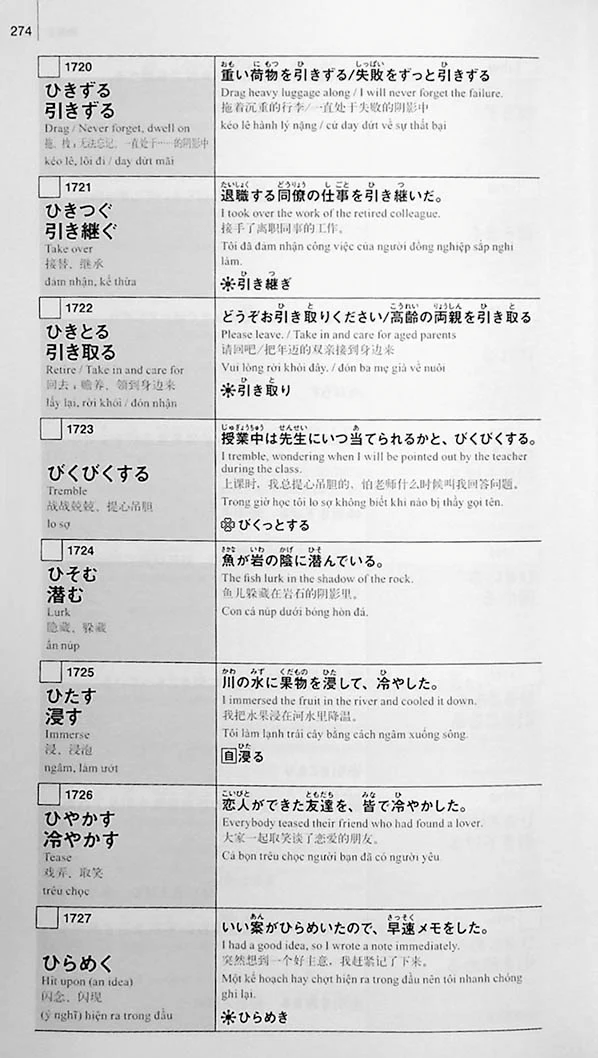 274
1720
ひきずる
引きずる
Drag / Never forget, dwell on
拖、拽；无法忘记、一直处于……的阴影中
kéo lê, lôi đi / day dứt mãi
おも にもつ ひ しっぱい ひ
重い荷物を引きずる/失敗をずっと引きずる
Drag heavy luggage along / I will never forget the failure.
拖着沉重的行李/一直处于失败的阴影中
kéo lê hành lý nặng / cứ day dứt về sự thất bại
1721
ひきつぐ
引き継ぐ
Take over
接替、继承
đảm nhận, kế thừa
たいしょく どうりょう しごと ひ つ
退職する同僚の仕事を引き継いだ。
I took over the work of the retired colleague.
接手了离职同事的工作。
Tôi đã đảm nhận công việc của người đồng nghiệp sắp nghỉ
làm.
ひ つ
☀引き継ぎ
1722
ひきとる
引き取る
Retire / Take in and care for
回去；赡养、领到身边来
lấy lại, rời khỏi / đón nhận
ひ と こうれい りょうしん ひ と
どうぞお引き取りください/高齢の両親を引き取る
Please leave. / Take in and care for aged parents
请回吧/把年迈的双亲接到身边来
Vui lòng rời khỏi đây. / đón ba mẹ già về nuôi
ひ と
☀引き取り
1723
びくびくする
Tremble
战战兢兢、提心吊胆
lo sợ
じゅぎょうちゅう せんせい あ
授業中は先生にいつ当てられるかと、びくびくする。
I tremble, wondering when I will be pointed out by the teacher
during the class.
上课时，我总提心吊胆的，怕老师什么时候叫我回答问题。
Trong giờ học tôi lo sợ không biết khi nào bị thầy gọi tên.
びくっとする
1724
ひそむ
潜む
Lurk
隐藏、躲藏
ẩn núp
さかな いわ かげ ひそ
魚が岩の陰に潜んでいる。
The fish lurk in the shadow of the rock.
鱼儿躲藏在岩石的阴影里。
Con cá núp dưới bóng hòn đá.
1725
ひたす
浸す
Immerse
浸、浸泡
ngâm, làm ướt
かわ みず くだもの ひた ひ
川の水に果物を浸して、冷やした。
I immersed the fruit in the river and cooled it down.
我把水果浸在河水里降温。
Tôi làm lạnh trái cây bằng cách ngâm xuống sông.
ひた
自浸る
1726
ひやかす
冷やかす
Tease
戏弄、取笑
trêu chọc
こいびと ともだち みな ひ
恋人ができた友達を、皆で冷やかした。
Everybody teased their friend who had found a lover.
大家一起取笑谈了恋爱的朋友。
Cả bọn trêu chọc người bạn đã có người yêu.
1727
ひらめく
Hit upon (an idea)
闪念、闪现
(ý nghĩ) hiện ra trong đầu
あん さっそく
いい案がひらめいたので、早速メモをした。
I had a good idea, so I wrote a note immediately.
突然想到一个好主意，我赶紧记了下来。
Một kế hoạch hay chợt hiện ra trong đầu nên tôi nhanh chóng
ghi lại.
☀ひらめき